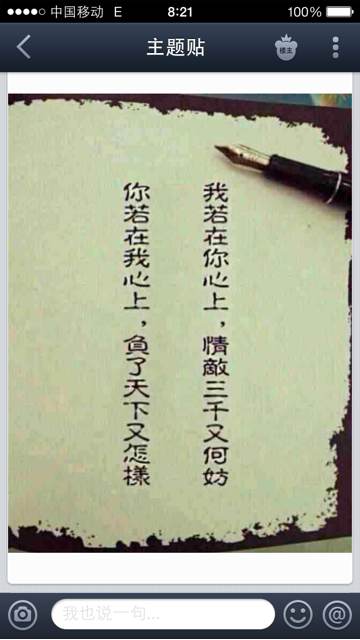 中国移动 E 8:21 100%
主题贴
楼主
我若在你心上，情敵三千又何妨
你若在我心上，負了天下又怎樣
我也说一句...
@